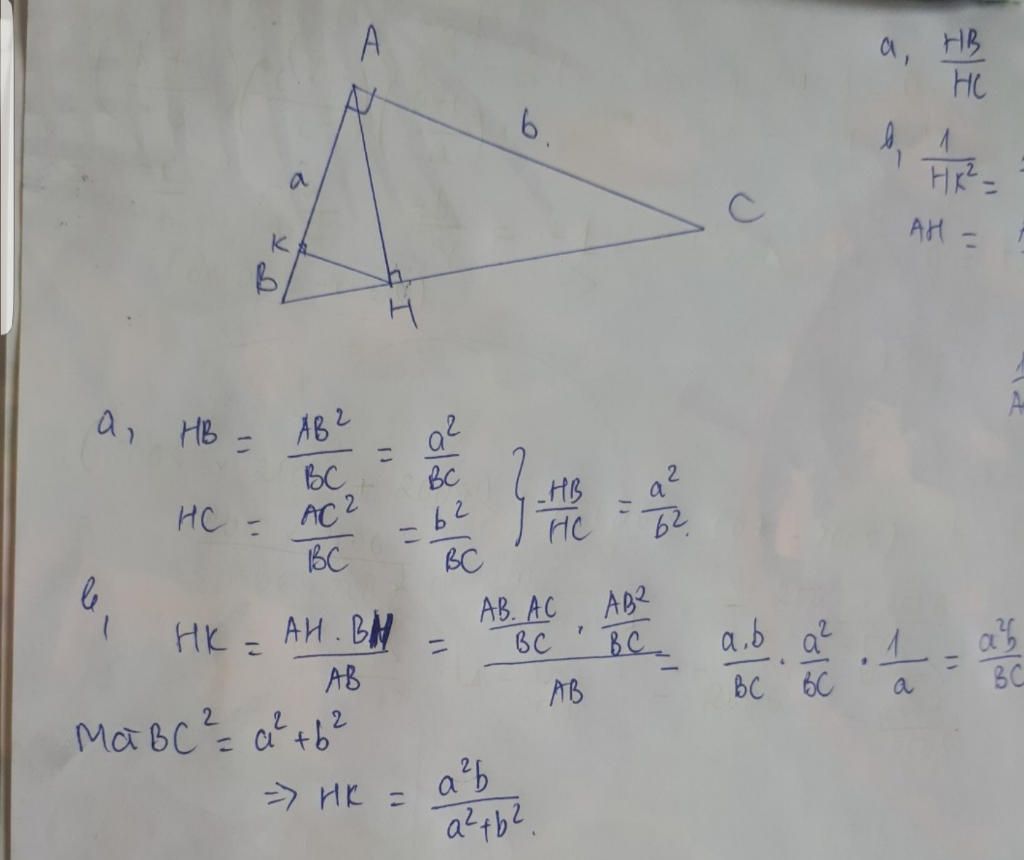 A
b.
a
C
K
B
H
a, HB/HC
b, 1/HK² =
AH =
a, HB = AB²/BC = a²/BC
HC = AC²/BC = b²/BC } = HB/HC = a²/b².
b, HK = AH . BH/AB = (AB. AC/BC . AB²/BC)/AB = a.b/BC . a²/BC . 1/a = a²b/BC
Mà BC² = a² + b²
=> HK = a²b/a²+b².